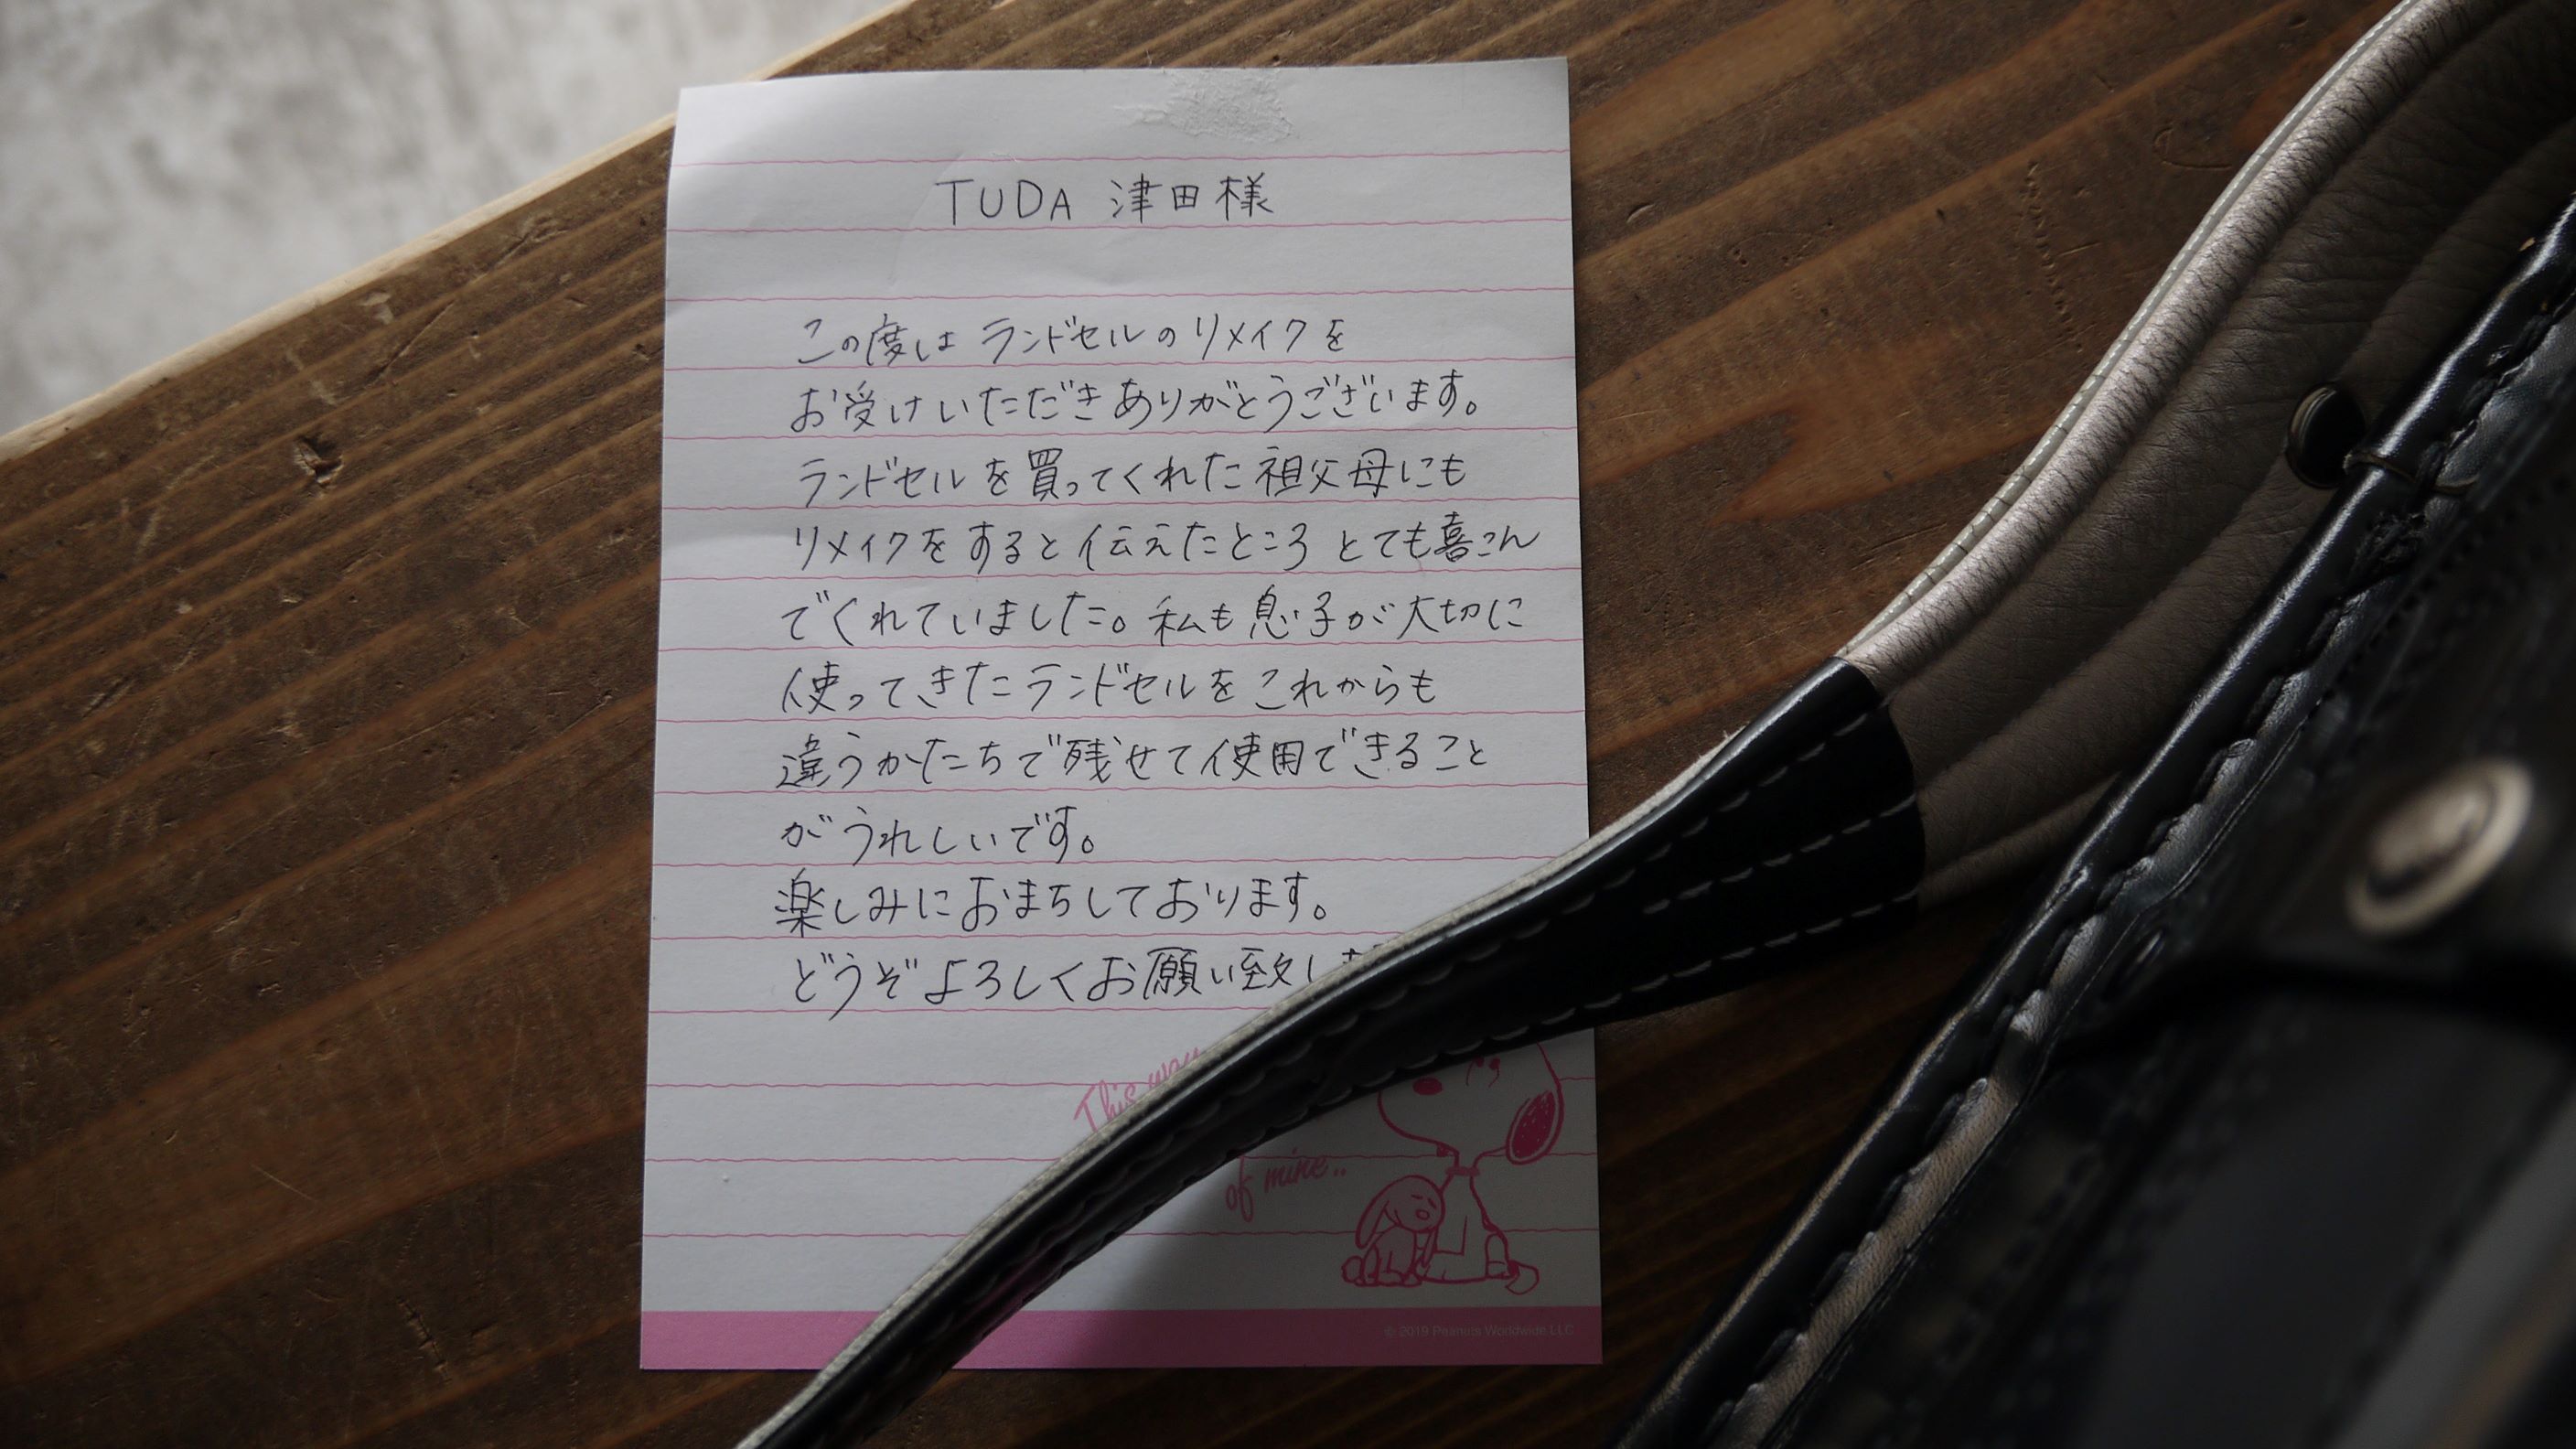 TUDA 津田様
この度は ランドセルのリメイクを
お受けいただきありがとうございます。
ランドセルを買ってくれた祖父母にも
リメイクをすると伝えたところ とても喜こん
でくれていました。私も息子が大切に
使ってきたランドセルをこれからも
違うかたちで残せて使用できること
がうれしいです。
楽しみにおまちしております。
どうぞよろしくお願い致しま
This way
of mine..
© 2019 Peanuts Worldwide LLC